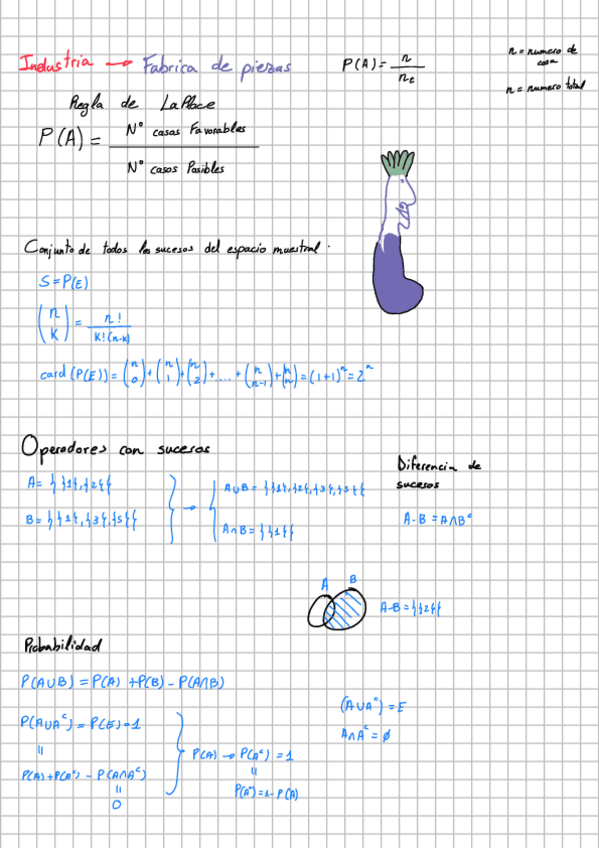 Industria → Fabrica de piezas
P(A) = n / n_t
n = numero de cosa
n = numero total
Regla de LaPlace
P(A) = Nº casos Favorables / Nº casos Posibles
Conjunto de todos los sucesos del espacio muestral.
S = P(E)
(n K) = n! / K!(n-k)
card (P(E)) = (n 0) + (n 1) + (n 2) + .... + (n n-1) + (n n) = (1+1)^n = 2^n
Operadores con sucesos
A = {{1},{2}}
B = {{1},{3},{5}}
→
A∪B = {{1},{2},{3},{5}}
A∩B = {{1}}
Diferencia de
sucesos
A-B = A∩B^c
A B
A-B = {{2}}
Probabilidad
P(A∪B) = P(A) + P(B) - P(A∩B)
P(A∪A^c) = P(E) = 1
=
P(A) + P(A^c) - P(A∩A^c)
=
0
P(A) → P(A^c) = 1
=
P(A^c) = 1 - P(A)
(A∪A^c) = E
A∩A^c = ∅